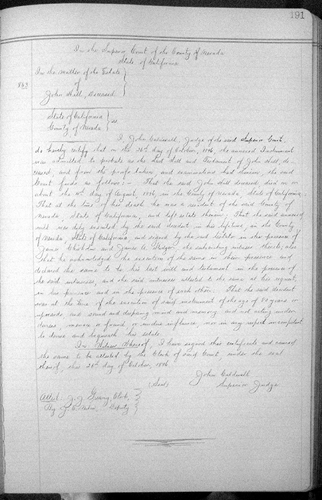 191
In the Superior Court of the County of Nevada
State of California
In the matter of the Estate
of
John Hill, deceased
State of California
County of Nevada } ss
I, John Caldwell, Judge of the said Superior Court,
do hereby certify that on the day of October, 1906 the annexed Instrument
was admitted to probate as the last Will and Testament of John Hill de-
ceased, and from the proofs taken, and examinations had therein, the said
Court finds as follows:- That the said John Hill deceased, died on or
about the day of August, 1906, in the County of Nevada, State of California,
That at the time of his death he was a resident of the said County of
Nevada, State of California, and left estate therein; That the said annexed
will was duly executed by the said decedent in his lifetime, in the County
of Nevada, State of California, and signed by the said testator in the presence of
and the subscribing witnesses thereto, also
that he acknowledged the execution of the same in their presence and
declared the same to be his last will and testament, in the presence of
the said witnesses, and the said witnesses attested to the same at his request,
in his presence and in the presence of each other. That the said decedent
was at the time of the execution of said instrument of the age of years or
upwards and sound and disposing mind and memory and not acting under
duress, menace, fraud, or undue influence, nor in any respect incompetent
to devise and bequeath his estate.
In Witness Whereof, I have signed this certificate and caused
the same to be attested by the Clerk of said Court, under the seal
thereof, this day of October, 1906
John Caldwell
Superior Judge
Attest Clerk,
By Deputy